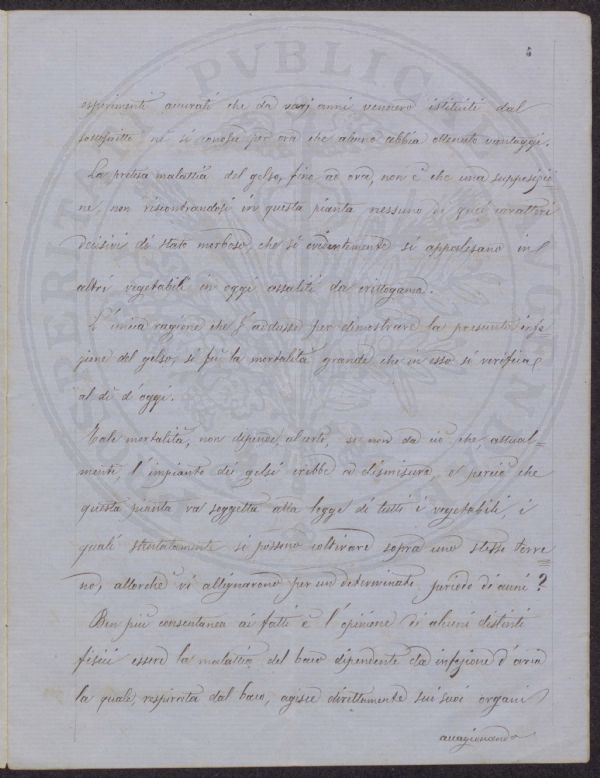 5
esperimenti accurati che da varj anni vennero istituiti dal
sottofritto né si conosce per ora che alcuno abbia ottenuto vantaggi.
La pretesa malattia del gelso, fino ad ora, non è che una supposizio=
ne, non riscontrandosi in questa pianta nessuno di quei caratteri
decisivi di stato morboso, che sì evidentemente si appalesano in
altri vegetabili in oggi assaliti da crittogama.
L'unica ragione che s'addusse per dimostrare la presunta infe=
zione del gelso, si fu la mortalità grande che in esso si verifica
al dì d'oggi.
Tale mortalità, non dipende, al certo, se non da ciò che, attual=
mente, l'impianto dei gelsi crebbe a dismisura, e perciò che
questa pianta va soggetta alla legge di tutti i vegetabili, i
quali stentatamente si possono coltivare sopra uno stesso terre
no, allorché vi allignarono per un determinato periodo di anni?
Ben più consentanea ai fatti è l'opinione di alcuni distinti
fisici essere la malattia del baco dipendente da infezione d'aria
la quale, respirata dal baco, agisce direttamente sui suoi organi
cagionando
PVBLICA